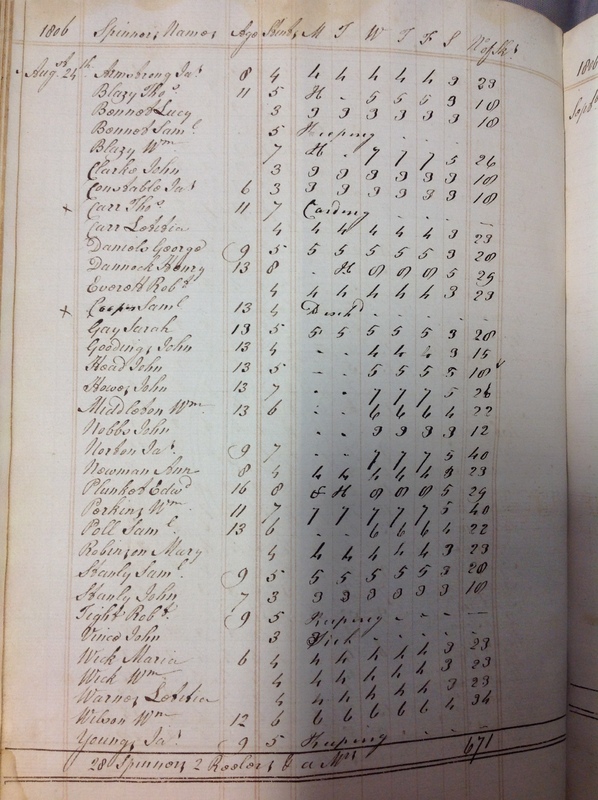 1806 Spinners Names Age Stint M T W T F S No of Sks
Augst 24th Armstrong Jas 8 4 4 4 4 4 4 3 23
Blazy Thos 11 5 H - 5 5 5 3 18
Bennet Lucy 3 3 3 3 3 3 3 18
Bennet Saml 5 Keeping - - -
Blazy Wm 7 H - 7 7 7 5 26
Clarke John 3 3 3 3 3 3 3 18
Constable Jas 6 3 3 3 3 3 3 3 18
x Carr Thos 11 7 Carding - - - —
Carr Letitia 4 4 4 4 4 4 3 23
Daniels George 9 5 5 5 5 5 5 3 28
Dannock Henry 13 8 - H 8 8 8 5 29
Everett Robt 4 4 4 4 4 4 3 23
x Cooper Saml 13 4 - - - -
Gay Sarah 13 5 5 5 5 5 5 3 28
Goodings John 13 4 - - 4 4 4 3 15
Head John 13 5 - - 5 5 5 3 18
Howes John 13 7 - - 7 7 7 5 26
Middleton Wm 13 6 - - 6 6 6 4 22
Nobbs John - - 3 3 3 3 12
Norton Jas 9 7 - - 7 7 7 5 40
Newman Ann 8 4 4 4 4 4 4 3 23
Plunket Edwd 16 8 8 H 8 8 8 5 29
Perkins Wm 11 7 7 7 7 7 7 5 40
Poll Saml 13 6 - - 6 6 6 4 22
Robinson Mary 4 4 4 4 4 4 3 23
Stanly Saml 9 5 5 5 5 5 5 3 28
Stanly John 7 3 3 3 3 3 3 3 18
Tight Robt 9 5 Keeping - - - —
Vince John 3 Sick - - - -
Wick Maria 6 4 4 4 4 4 4 3 23
Wick Wm 4 4 4 4 4 4 3 23
Warnes Letitia 4 4 4 4 4 4 3 23
Wilson Wm 12 6 6 6 6 6 6 4 34
Youngs Jas 9 5 Keeping - - - -
28 Spinners 2 Reelers & a Mrs 671
1806